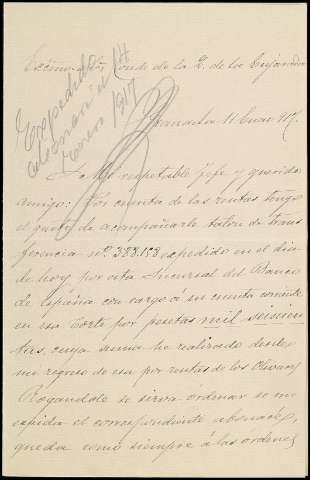 Excmo. Sr. Conde de la P. de los Infantes
Granada 11 Enero 917.
Expedido
abonaré el 14
Enero 1917
Mi respetable Jefe y querido
amigo: Por cuenta de las rentas tengo
el gusto de acompañarle talon de trans
ferencia nº. 388.188 expedido en el dia
de hoy por esta Sucursal del Banco
de España con cargo á su cuenta corriente
en esa Corte por pesetas mil seiscien
tas, cuya suma he realizado desde
mi regreso de esa por rentas de los Olivares
Rogandole se sirva órdenar se me
expida el correspondiente abonaré,
queda como siempre á las órdenes